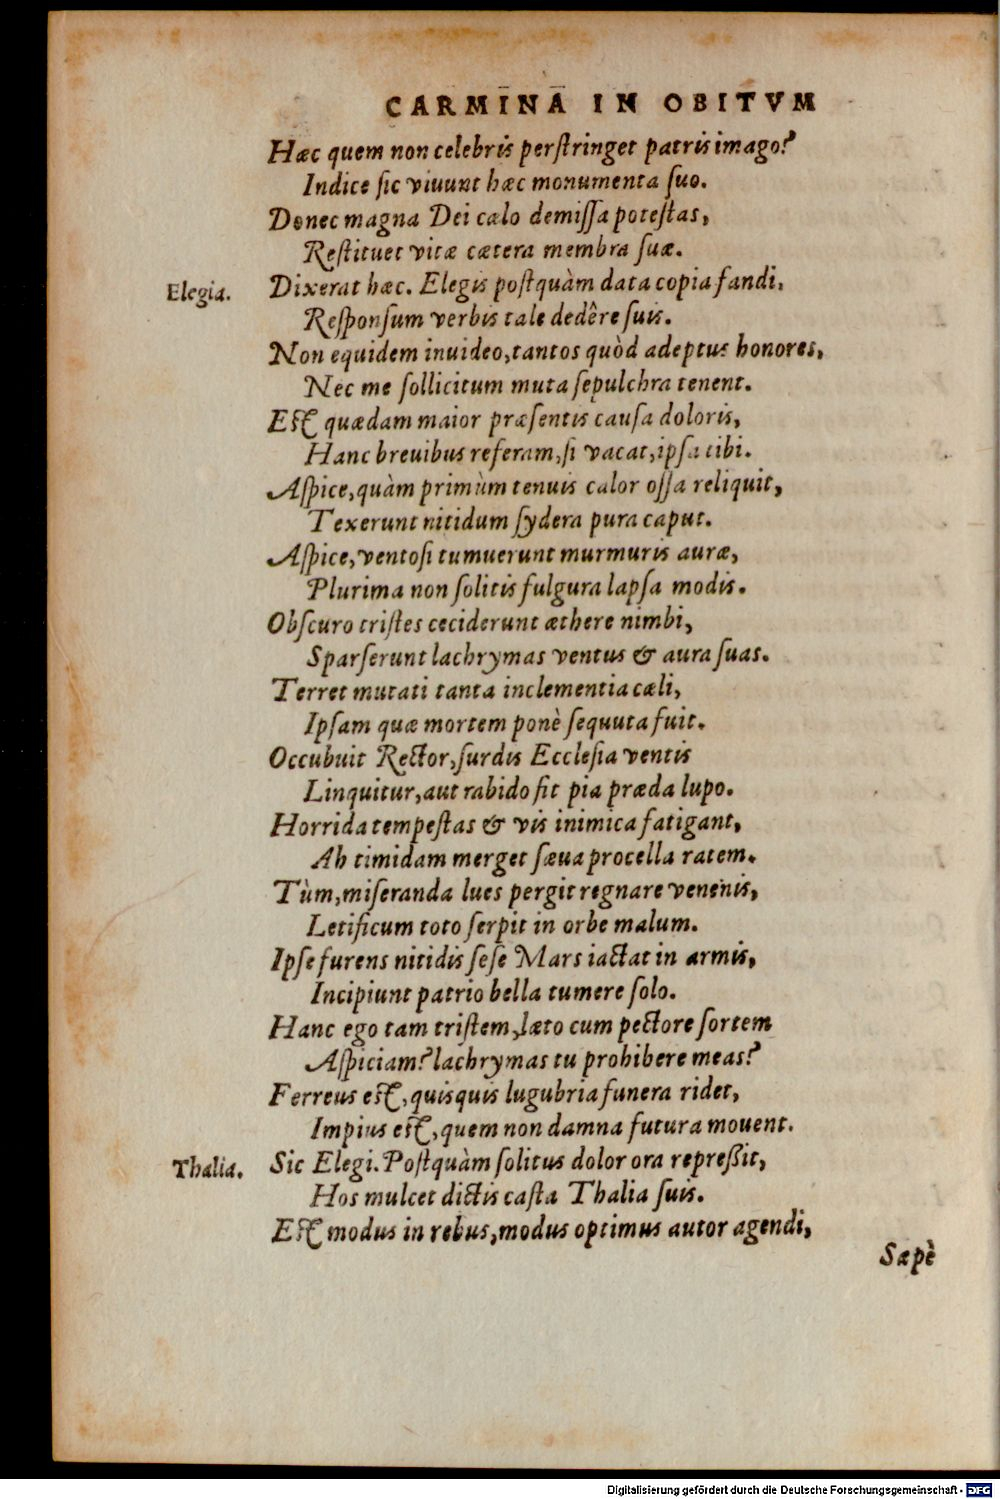 CARMINA IN OBITVM
Hæc quem non celebris perſtringet patris imago?
Indice ſic viuunt hæc monumenta ſuo.
Donec magna Dei cælo demiſſa poteſtas,
Reſtituet vitæ cætera membra ſuæ.
Elegia. Dixerat hæc. Elegis poſtquàm data copia fandi,
Reſponſum verbis tale dedêre ſuis.
Non equidem inuideo, tantos quòd adeptus honores,
Nec me ſollicitum muta ſepulchra tenent.
Eſt quædam maior præſentis cauſa doloris,
Hanc breuibus referam, ſi vacat, ipſa tibi.
Aſpice, quàm primùm tenuis calor oſſa reliquit,
Texerunt nitidum ſydera pura caput.
Aſpice, ventoſi tumuerunt murmuris auræ,
Plurima non ſolitis fulgura lapſa modis.
Obſcuro triſtes ceciderunt æthere nimbi,
Sparſerunt lachrymas ventus & aura ſuas.
Terret mutati tanta inclementia cæli,
Ipſam quæ mortem ponè ſequuta fuit.
Occubuit Rector, ſurdis Eccleſia ventis
Linquitur, aut rabido fit pia præda lupo.
Horrida tempeſtas & vis inimica fatigant,
Ah timidam merget ſæua procella ratem.
Tùm, miſeranda lues pergit regnare venenis,
Letificum toto ſerpit in orbe malum.
Ipſe furens nitidis ſeſe Mars iactat in armis,
Incipiunt patrio bella tumere ſolo.
Hanc ego tam triſtem, læto cum pectore ſortem
Aſpiciam? lachrymas tu prohibere meas?
Ferreus eſt, quisquis lugubria funera ridet,
Impius eſt, quem non damna futura mouent.
Thalia. Sic Elegi. Poſtquàm ſolitus dolor ora repreßit,
Hos mulcet dictis caſta Thalia ſuis.
Eſt modus in rebus, modus optimus autor agendi,
Sæpè
Digitalisierung gefördert durch die Deutsche Forschungsgemeinschaft - DFG